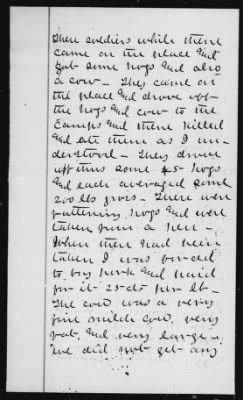 These soldiers while there
came on the place and
got some hogs and also
a cow - They came on
the place and drove off
the hogs and cow to the
Camps and there killed
and ate them as I un-
derstood - They drove
off thus some 45 hogs
and each averaged some
200 lbs gross. There were
fattening hogs and were
taken from a pen -
When there had been
taken I was forced
to buy pork and paid
for it 25 cts per lb -
The cow was a very
fine milch cow, very
fat, and very large.
We did not get any